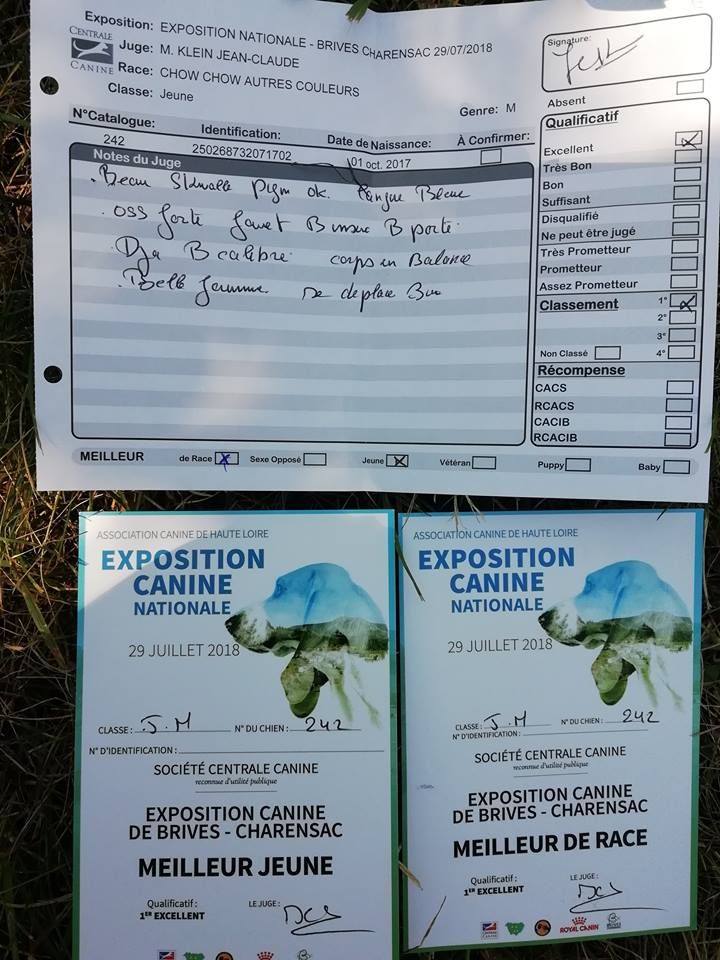 Exposition: EXPOSITION NATIONALE - BRIVES CHARENSAC 29/07/2018
CENTRALE
CANINE
Juge: M. KLEIN JEAN-CLAUDE
Race: CHOW CHOW AUTRES COULEURS
Classe: Jeune
Genre: M
Signature:
Absent
N°Catalogue:
242
Identification:
250268732071702
Date de Naissance:
01 oct. 2017
À Confirmer:
Notes du Juge
. Beau Pigm ok. langue Bleue
. oss forte B porte
B calibre corps en Balance
. Belle Se deplace Bien
Qualificatif
Excellent
Très Bon
Bon
Suffisant
Disqualifié
Ne peut être jugé
Très Prometteur
Prometteur
Assez Prometteur
Classement
1°
2°
3°
Non Classé
4°
Récompense
CACS
RCACS
CACIB
RCACIB
MEILLEUR de Race Sexe Opposé Jeune Vétéran Puppy Baby
ASSOCIATION CANINE DE HAUTE LOIRE
EXPOSITION
CANINE
NATIONALE
29 JUILLET 2018
CLASSE : J.M N° DU CHIEN : 242
N° D'IDENTIFICATION :
SOCIÉTÉ CENTRALE CANINE
reconnue d'utilité publique
EXPOSITION CANINE
DE BRIVES - CHARENSAC
MEILLEUR JEUNE
Qualificatif :
1ER EXCELLENT
LE JUGE :
ASSOCIATION CANINE DE HAUTE LOIRE
EXPOSITION
CANINE
NATIONALE
29 JUILLET 2018
CLASSE : J.M N° DU CHIEN : 242
N° D'IDENTIFICATION :
SOCIÉTÉ CENTRALE CANINE
reconnue d'utilité publique
EXPOSITION CANINE
DE BRIVES - CHARENSAC
MEILLEUR DE RACE
Qualificatif :
1ER EXCELLENT
LE JUGE :
ROYAL CANIN